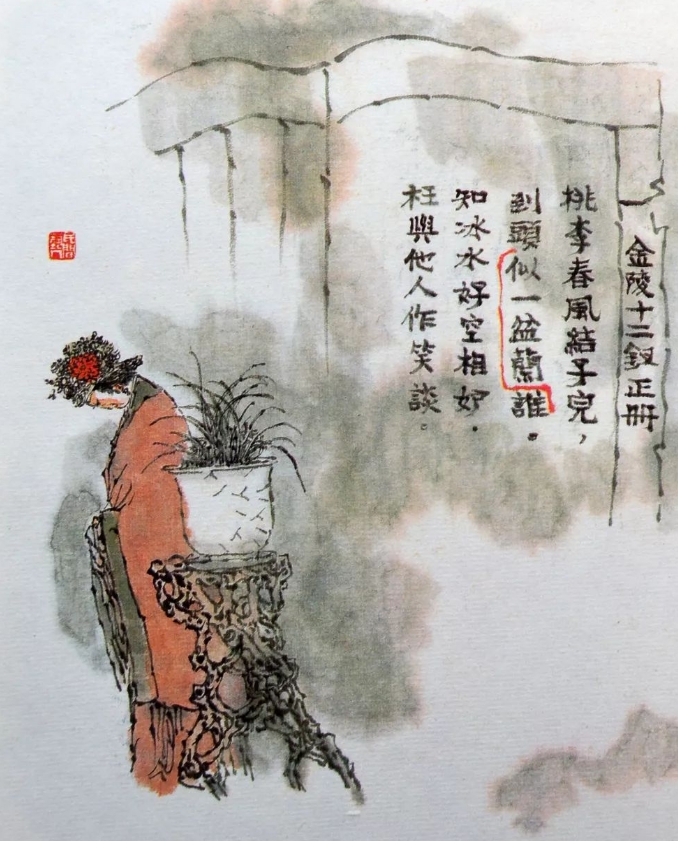 金陵十二釵正冊
桃李春風結子完，
到頭似一盆蘭誰。
知冰水好空相妒．
枉與他人作笑談。